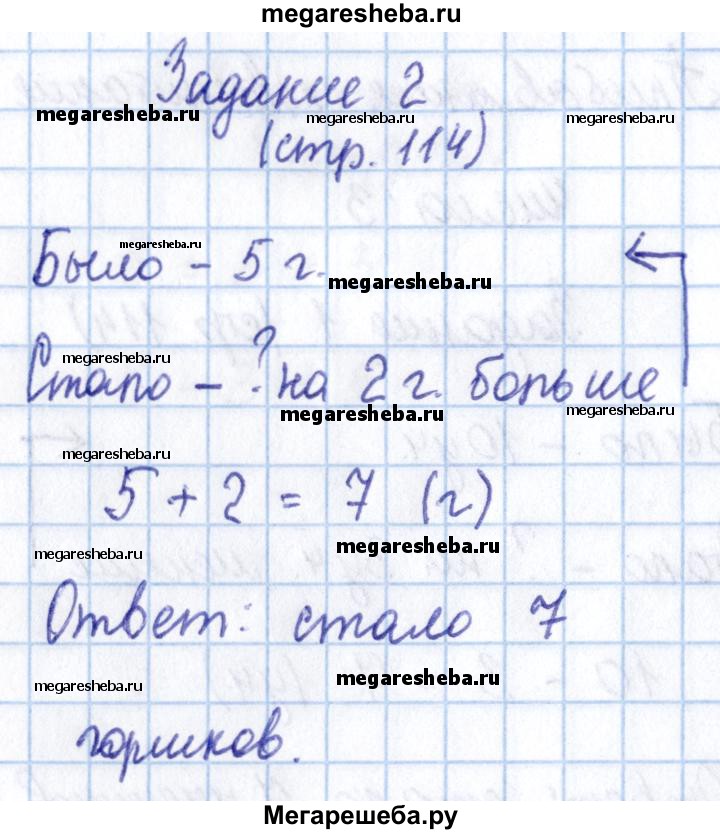 megaresheba.ru
Задание 2
megaresheba.ru megaresheba.ru megaresheba.ru
(стр. 114)
megaresheba.ru
Было – 5 г.
megaresheba.ru
megaresheba.ru
Стало – ? на 2 г. больше
megaresheba.ru megaresheba.ru
megaresheba.ru
5 + 2 = 7 (г)
megaresheba.ru megaresheba.ru
Ответ: стало 7
megaresheba.ru megaresheba.ru
горшков.
Мегарешеба.ру